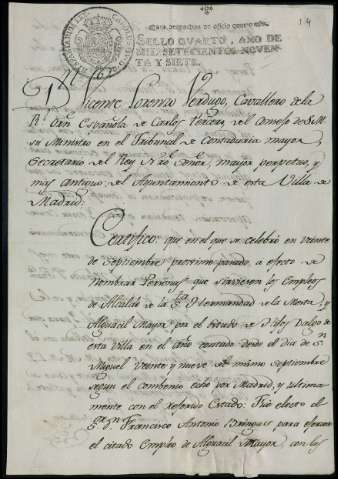 SELLO QVARTO, AÑO DE
MIL SETECIENTOS NOVEN
TA Y SIETE.
Dn. Vicente Lorenzo Verdugo, Cavallero de la
Rl. Orn. Española de Carlos Tercero, del Consejo de S.M.
su Ministro en el Tribunal de Contaduria mayor,
Secretario del Rey N. Señor, mayor perpetuo, y
mas antiguo del Ayuntamiento de esta Villa de
Madrid.
Certifico: que en el que se celebró en veinte
de Septiembre proximo pasado, a efecto de
nombrar Personas que sirviesen los Empleos
de Alcalde de la Sta. Hermandad de la Mesta, y
Alguacil Mayor por el estado de Hijos Dalgo de
esta Villa en el año contado desde el dia de Sn.
Miguel veinte y nueve del mismo Septiembre
segun el combenio echo por Madrid, y ultima
mente con el referido Estado: Fue electo el
Sr. Dn. Francisco Antonio para exercer
el citado Empleo de Alguacil Mayor, con los